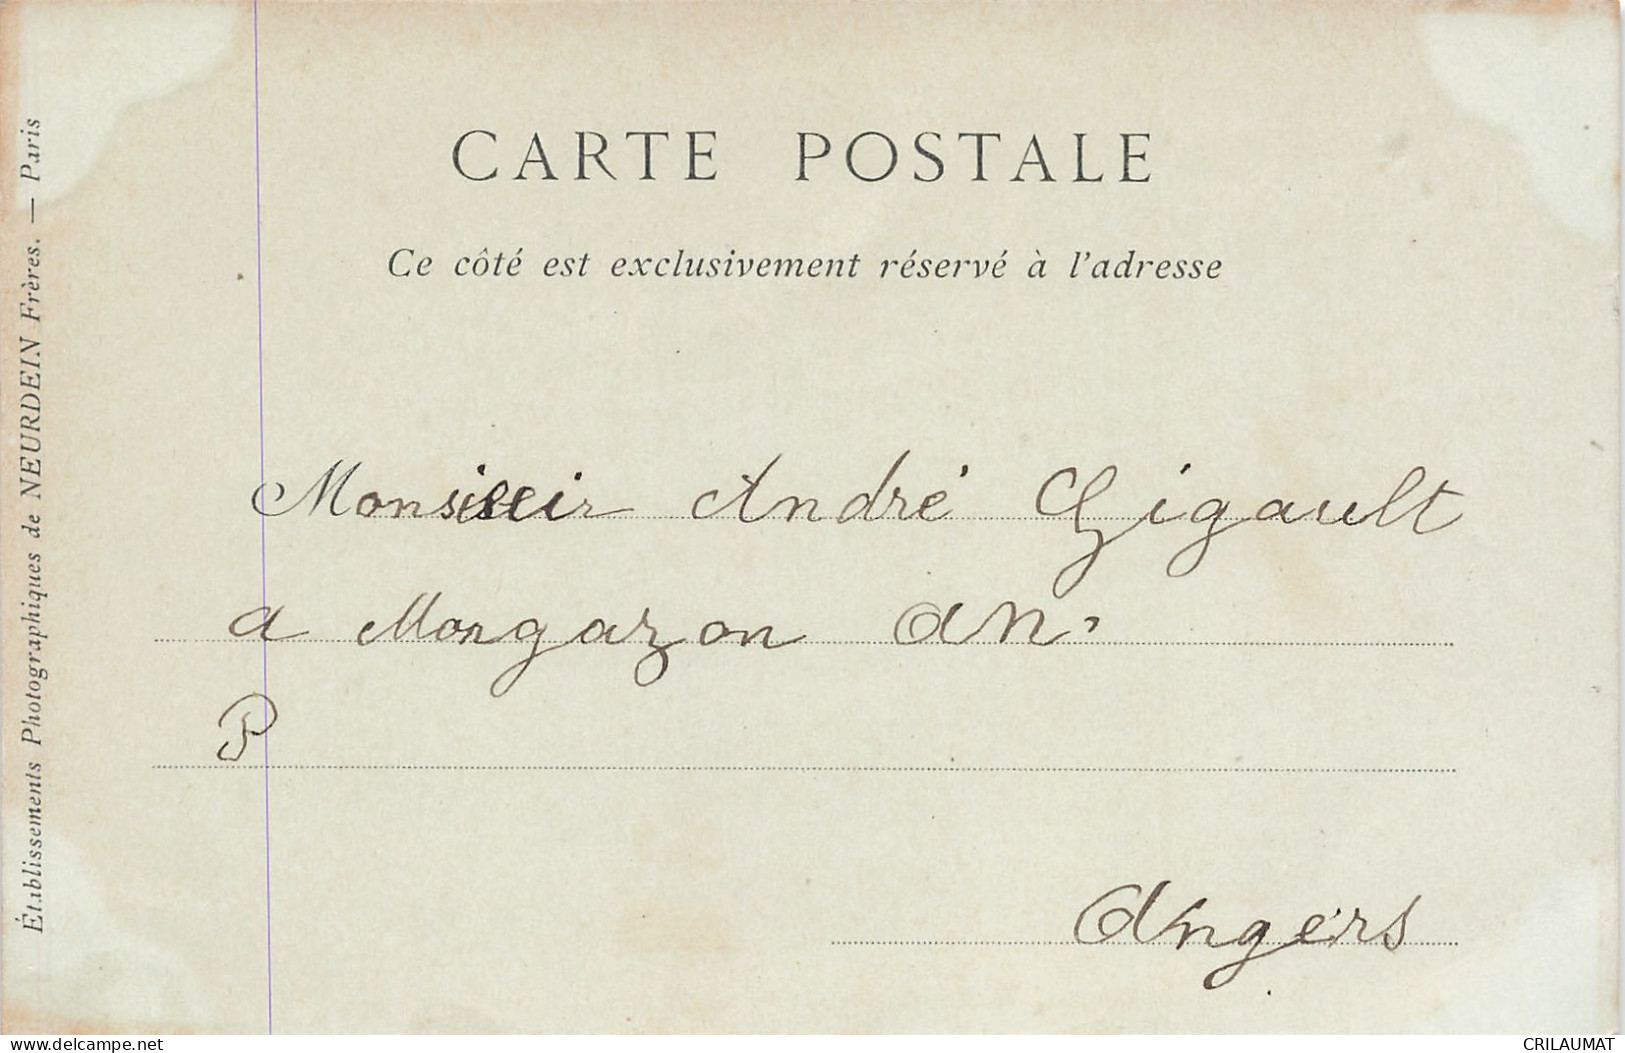 CARTE POSTALE
Ce côté est exclusivement réservé à l'adresse
Établissements Photographiques de NEURDEIN Frères. — Paris
Monsieur André Gigault
a Mongazon
P
Angers
www.delcampe.net
CRILAUMAT